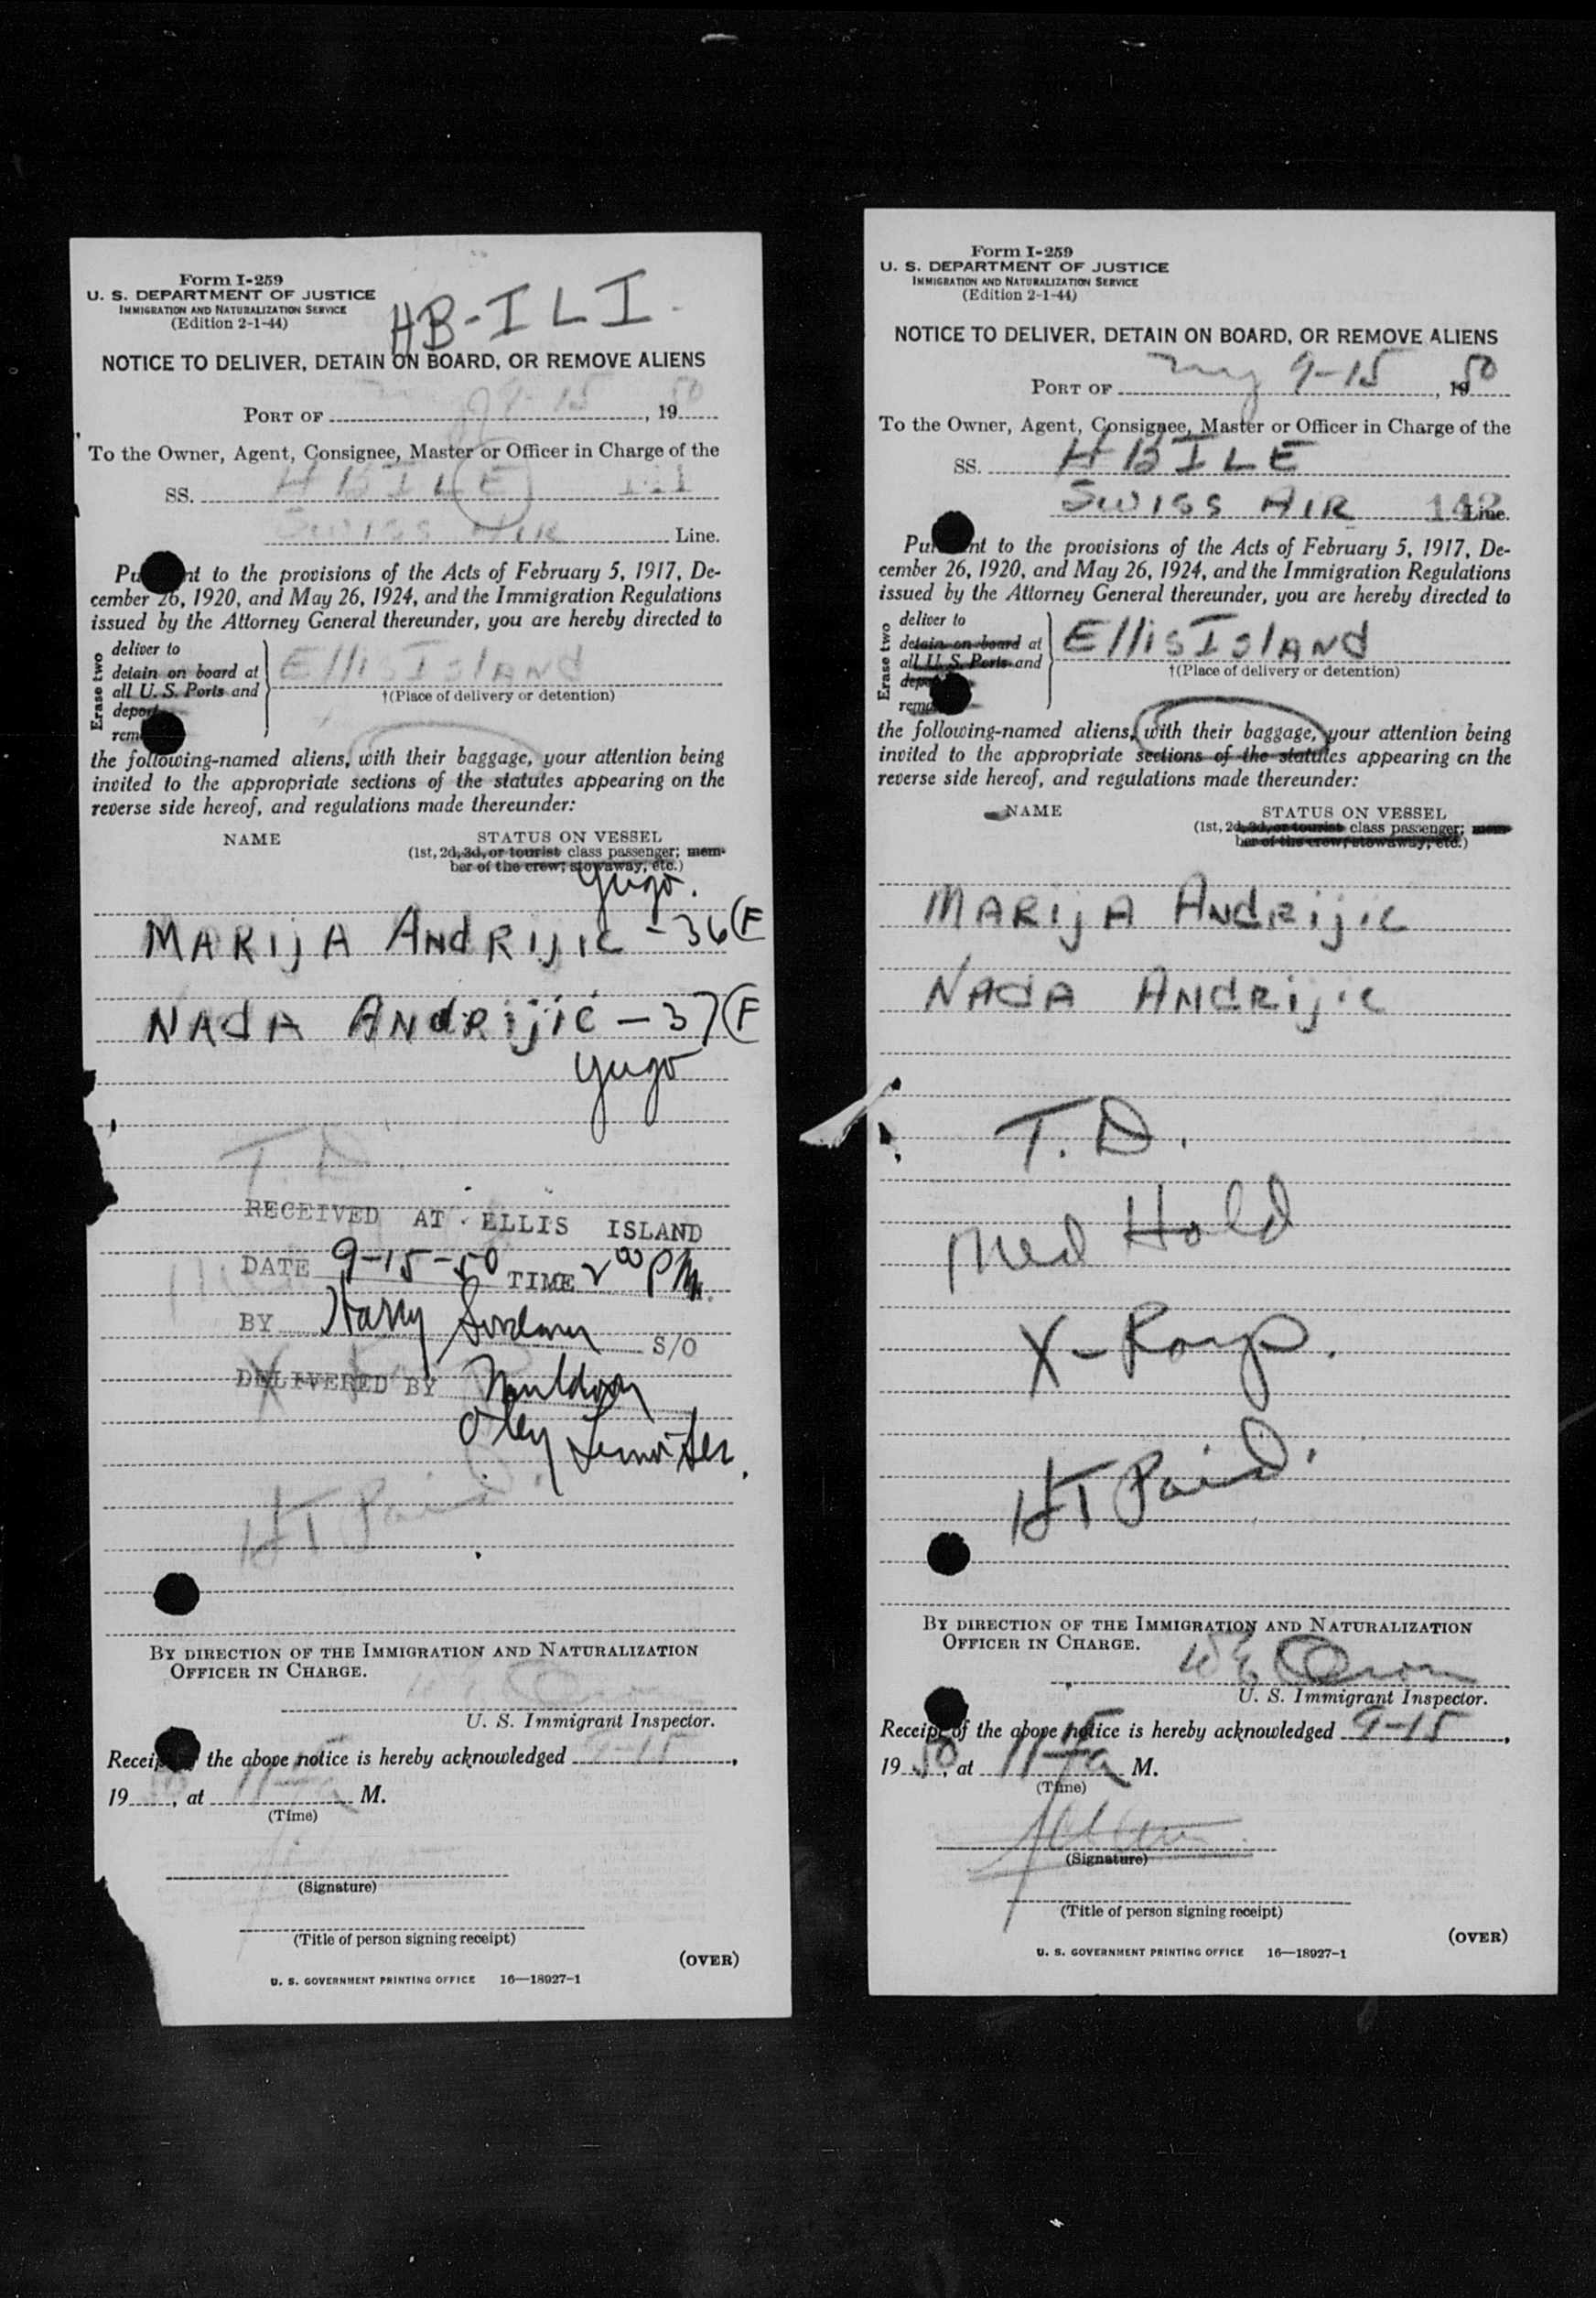 Form I-259
U. S. DEPARTMENT OF JUSTICE
IMMIGRATION AND NATURALIZATION SERVICE
(Edition 2-1-44)
HB-ILI.
NOTICE TO DELIVER, DETAIN ON BOARD, OR REMOVE ALIENS
PORT OF 9-15, 1950
To the Owner, Agent, Consignee, Master or Officer in Charge of the
SS. HBILE
SWISS AIR Line.
Pursuant to the provisions of the Acts of February 5, 1917, De-
cember 26, 1920, and May 26, 1924, and the Immigration Regulations
issued by the Attorney General thereunder, you are hereby directed to
Erase two
deliver to
detain on board at
all U. S. Ports and
deport
rem
Ellis Island
†(Place of delivery or detention)
the following-named aliens, with their baggage, your attention being
invited to the appropriate sections of the statutes appearing on the
reverse side hereof, and regulations made thereunder:
NAME STATUS ON VESSEL
(1st, 2d, 3d, or tourist class passenger; mem-
ber of the crew; stowaway, etc.)
Yugo.
MARIJA ANDRIJIC - 36 (F
NADA ANDRIJIĆ - 37 (F
Yugo
T.D.
RECEIVED AT ELLIS ISLAND
DATE 9-15-50 TIME 2 00 PM.
BY Harry S/O
DELIVERED BY Muldoon
HT Paid.
BY DIRECTION OF THE IMMIGRATION AND NATURALIZATION
OFFICER IN CHARGE.
U. S. Immigrant Inspector.
Receipt of the above notice is hereby acknowledged 9-15,
1950, at 11 15 a M.
(Time)
(Signature)
(Title of person signing receipt)
(OVER)
U. S. GOVERNMENT PRINTING OFFICE 16—18927-1
Form I-259
U. S. DEPARTMENT OF JUSTICE
IMMIGRATION AND NATURALIZATION SERVICE
(Edition 2-1-44)
NOTICE TO DELIVER, DETAIN ON BOARD, OR REMOVE ALIENS
PORT OF ny 9-15, 1950
To the Owner, Agent, Consignee, Master or Officer in Charge of the
SS. HBILE
SWISS AIR 142 Line.
Pursuant to the provisions of the Acts of February 5, 1917, De-
cember 26, 1920, and May 26, 1924, and the Immigration Regulations
issued by the Attorney General thereunder, you are hereby directed to
Erase two
deliver to
detain on board at
all U. S. Ports and
dep
remo
Ellis Island
†(Place of delivery or detention)
the following-named aliens, with their baggage, your attention being
invited to the appropriate sections of the statutes appearing on the
reverse side hereof, and regulations made thereunder:
NAME STATUS ON VESSEL
(1st, 2d, 3d, or tourist class passenger; mem-
ber of the crew, stowaway, etc.)
MARIJA ANDRIJIC
NADA ANDRIJIC
T.D.
Med Hold
X-Rays.
HT Paid.
BY DIRECTION OF THE IMMIGRATION AND NATURALIZATION
OFFICER IN CHARGE.
U. S. Immigrant Inspector.
Receipt of the above notice is hereby acknowledged 9-15,
1950, at 11 15 a M.
(Time)
(Signature)
(Title of person signing receipt)
(OVER)
U. S. GOVERNMENT PRINTING OFFICE 16—18927-1